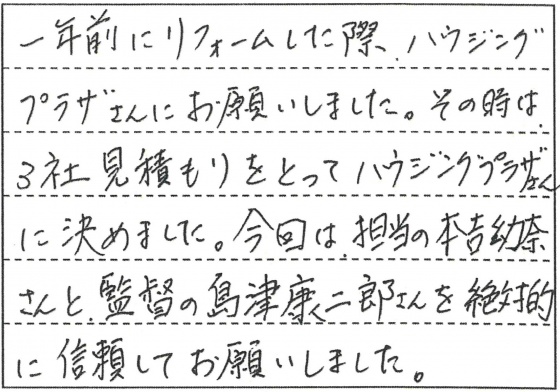 一年前にリフォームした際、ハウジング
プラザさんにお願いしました。その時は、
3社見積もりをとってハウジングプラザさん
に決めました。今回は、担当の本吉幼奈
さんと、監督の島津康二郎さんを絶対的
に信頼してお願いしました。